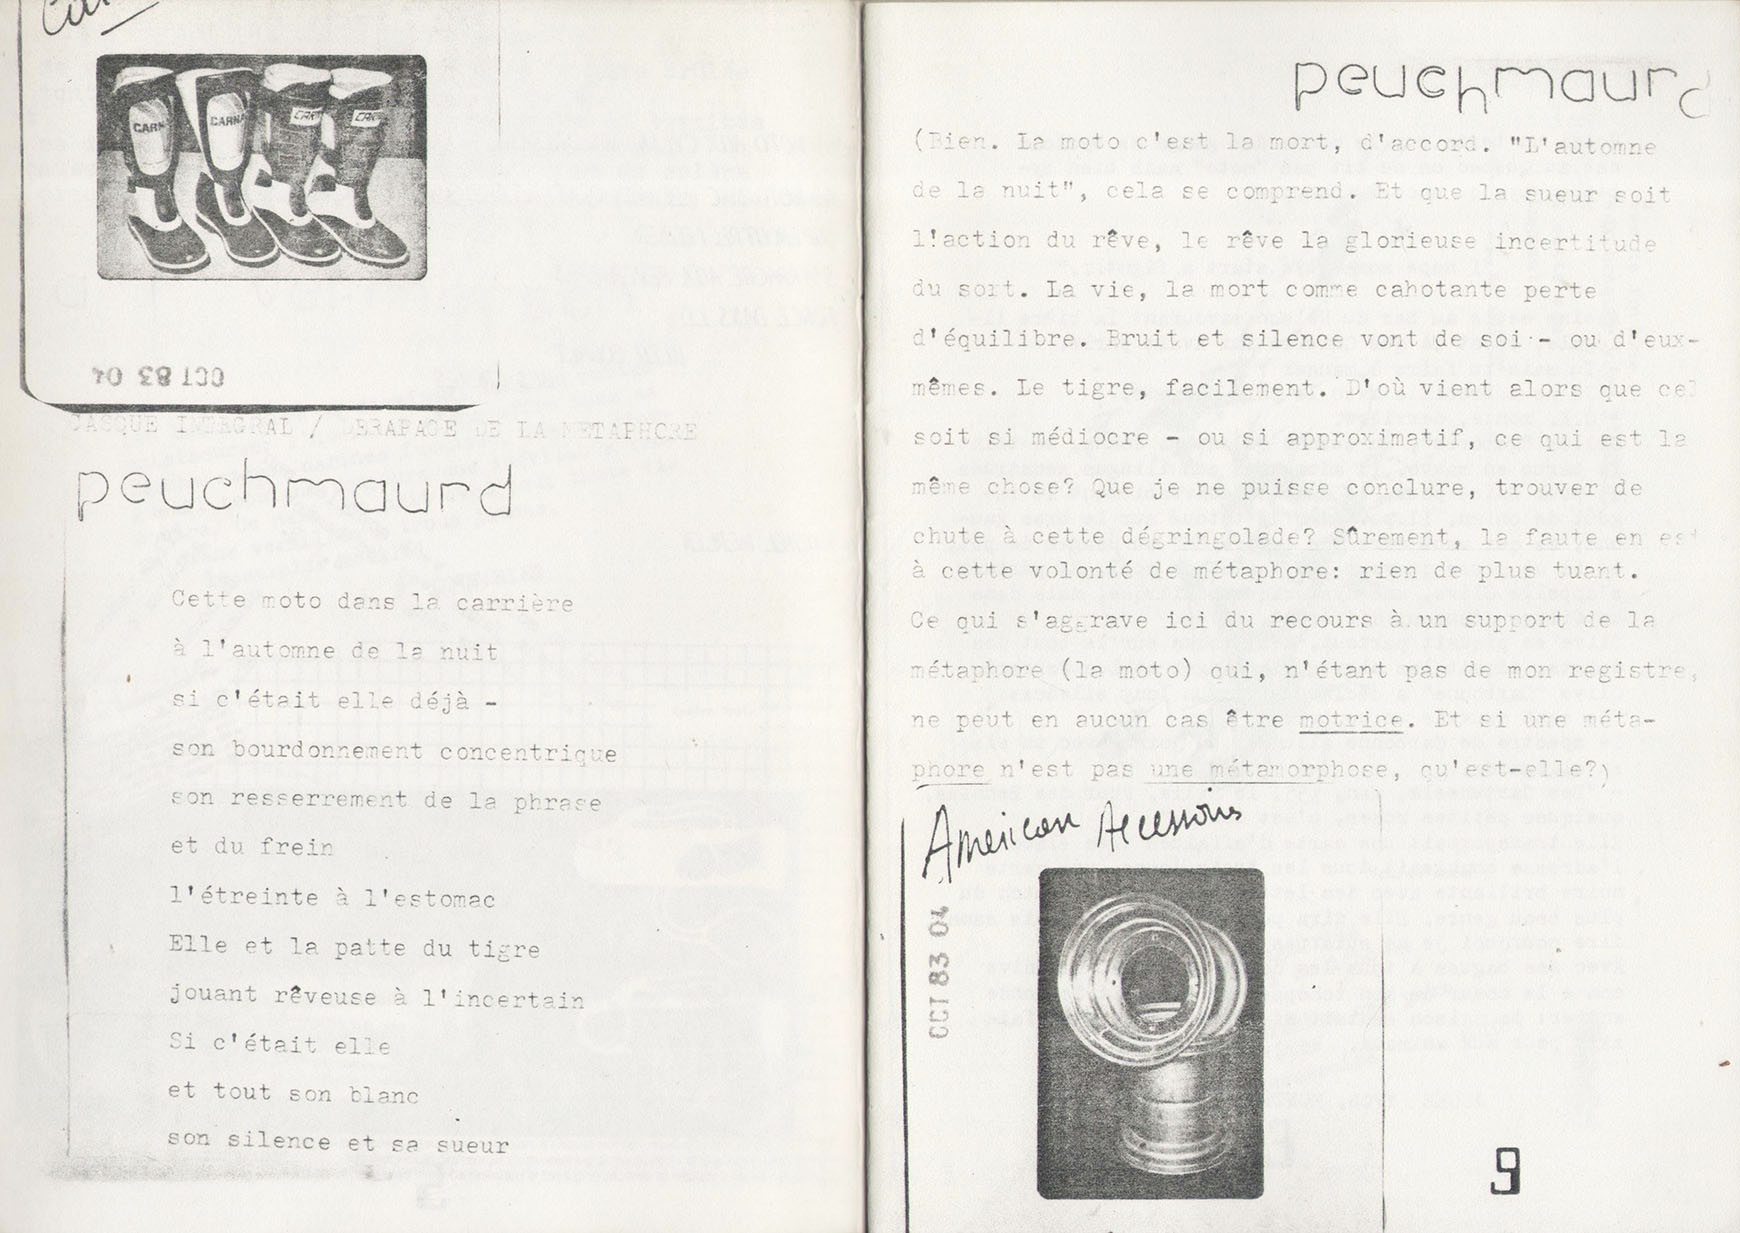 CARNA
CARNA
OCT 83 04
CASQUE INTEGRAL / DERAPAGE DE LA METAPHORE
peuchmaurd
Cette moto dans la carrière
à l'automne de la nuit
si c'était elle déjà -
son bourdonnement concentrique
son resserrement de la phrase
et du frein
l'étreinte à l'estomac
Elle et la patte du tigre
jouant rêveuse à l'incertain
Si c'était elle
et tout son blanc
son silence et sa sueur
peuchmaurd
(Bien. La moto c'est la mort, d'accord. "L'automne
de la nuit", cela se comprend. Et que la sueur soit
l'action du rêve, le rêve la glorieuse incertitude
du sort. La vie, la mort comme cahotante perte
d'équilibre. Bruit et silence vont de soi - ou d'eux-
mêmes. Le tigre, facilement. D'où vient alors que cel
soit si médiocre - ou si approximatif, ce qui est la
même chose? Que je ne puisse conclure, trouver de
chute à cette dégringolade? Sûrement, la faute en est
à cette volonté de métaphore: rien de plus tuant.
Ce qui s'aggrave ici du recours à un support de la
métaphore (la moto) qui, n'étant pas de mon registre,
ne peut en aucun cas être motrice. Et si une méta-
phore n'est pas une métamorphose, qu'est-elle?)
American Accessoires
OCT 83 04
9